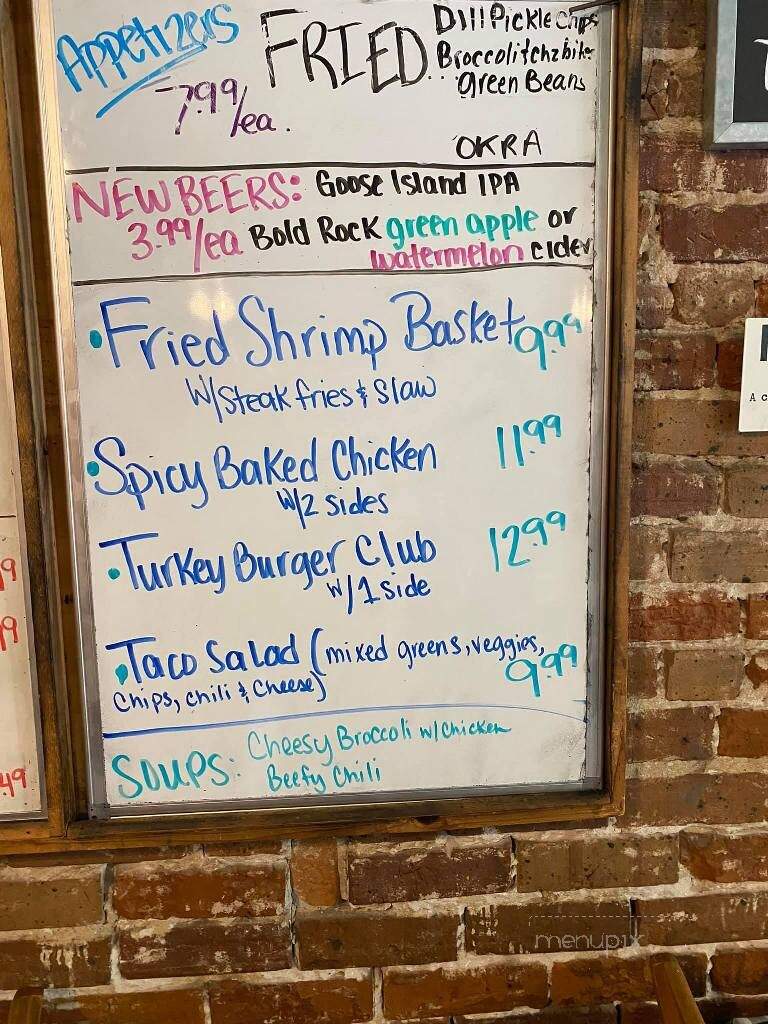 Appetizers FRIED Dill Pickle Chips
Broccoli & chz bites
Green Beans
-7.99/ea.
OKRA
NEW BEERS: Goose Island IPA
3.99/ea Bold Rock green apple or
watermelon cider
•Fried Shrimp Basket 9.99
W/Steak fries & Slaw
•Spicy Baked Chicken 11.99
W/2 sides
•Turkey Burger Club 12.99
w/1 side
•Taco Salad (mixed greens, veggies,
chips, chili & cheese) 9.99
SOUPS: Cheesy Broccoli w/chicken
Beefy Chili
9
19
49
A c
menupix